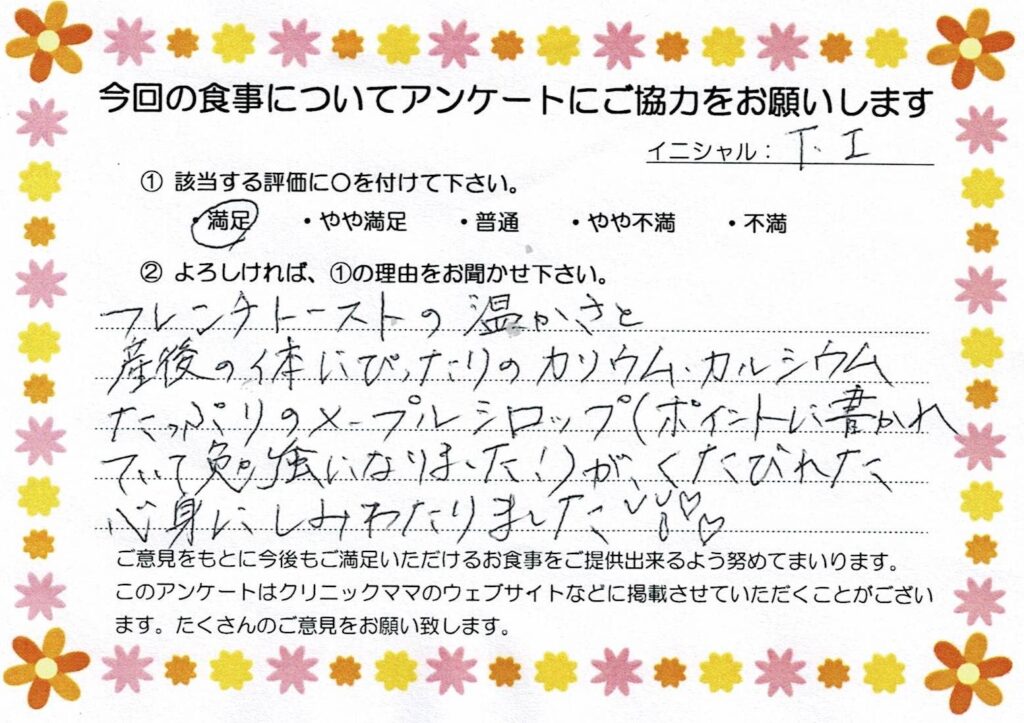 今回の食事についてアンケートにご協力をお願いします
イニシャル： T. I
① 該当する評価に○を付けて下さい。
・満足 ・やや満足 ・普通 ・やや不満 ・不満
② よろしければ、①の理由をお聞かせ下さい。
フレンチトーストの温かさと
産後の体にぴったりのカリウム・カルシウム
たっぷりのメープルシロップ(ポイントに書かれ
ていて勉強になりました!)が、くたびれた
心身にしみわたりました♡♡
ご意見をもとに今後もご満足いただけるお食事をご提供出来るよう努めてまいります。
このアンケートはクリニックママのウェブサイトなどに掲載させていただくことがござい
ます。たくさんのご意見をお願い致します。